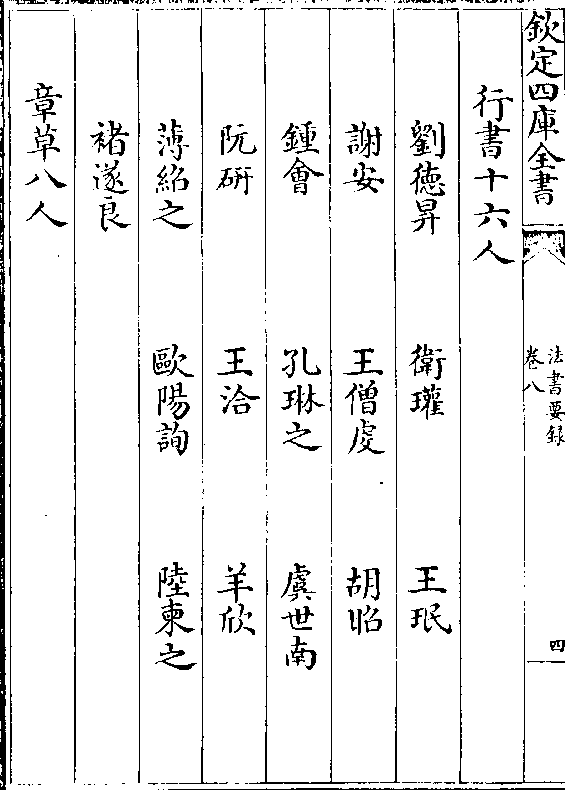 欽定四庫全書
法書要録
卷八
四
行書十六人
劉德昇 衛瓘 王珉
謝安 王僧虔 胡昭
鍾會 孔琳之 虞世南
阮研 王洽 羊欣
薄紹之 歐陽詢 陸柬之
褚遂良
章草八人